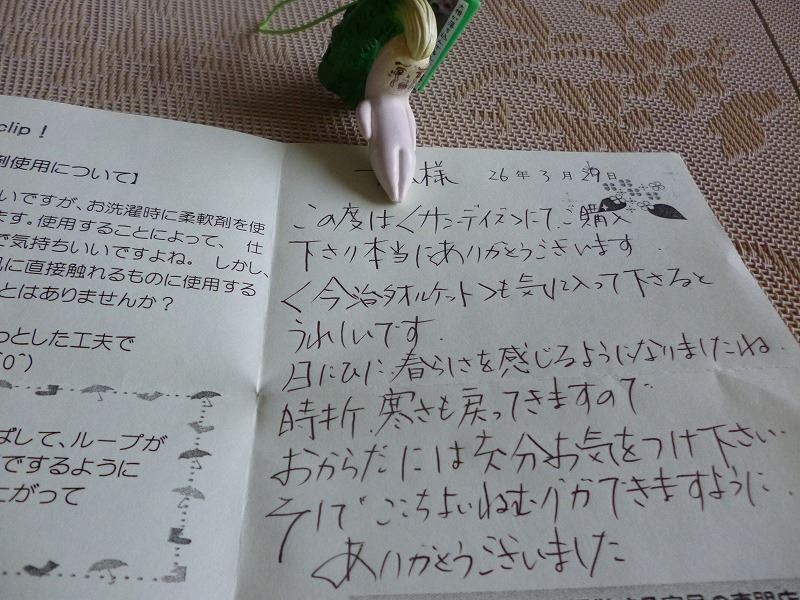 clip！
剤使用について】
いですが、お洗濯時に柔軟剤を使
ます。使用することによって、 仕
で気持ちいいですよね。 しかし、
肌に直接触れるものに使用する
とはありませんか？
っとした工夫で
^0^)
ばして、ループが
でするように
上がって
様 26年3月 日
この度は〈サンデイズ〉にてご購入
下さり本当にありがとうございます.
〈今治タオルケット〉も気に入って下さると
うれしいです.
日にひに、春らしさを感じるようになりましたね.
時折、寒さも戻ってきますので
おからだには充分お気をつけ下さい.
そしてここちよいねむりができますように.
ありがとうございました
の専門店